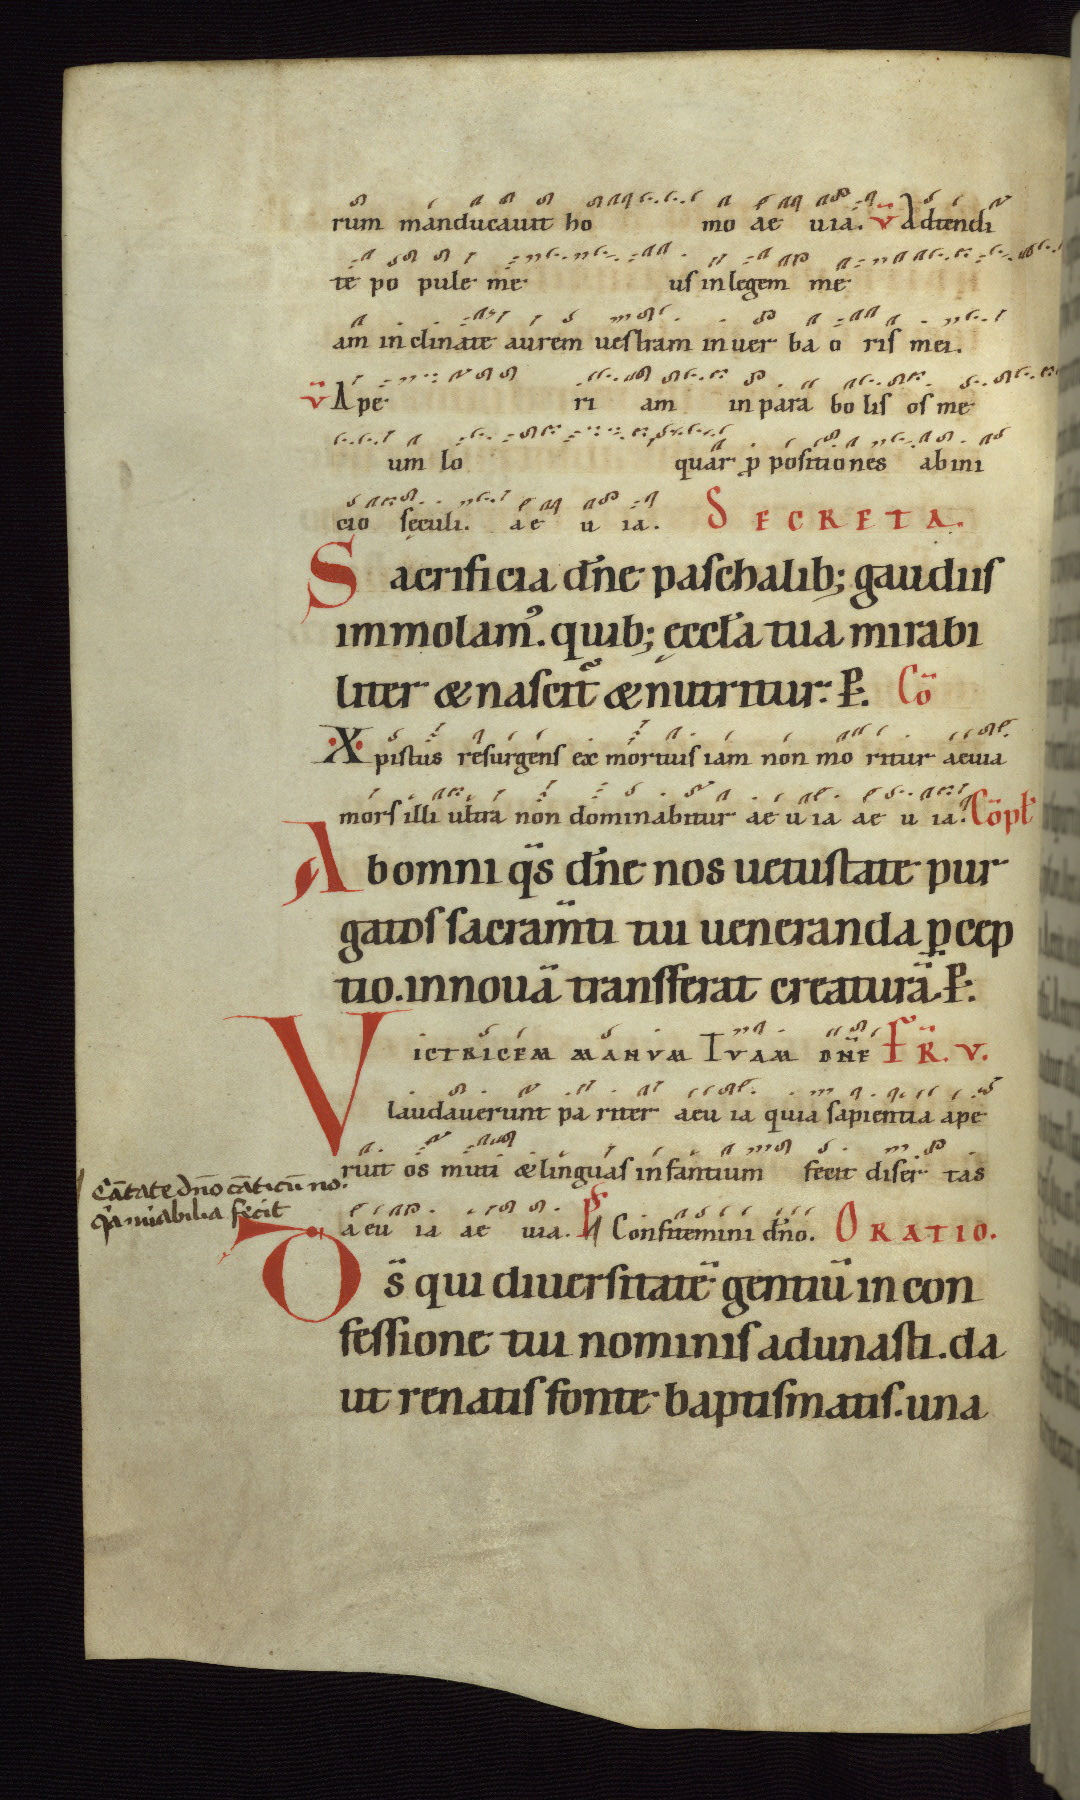 rum manducauit ho mo ae uia. v̄ Adtendi
te po pule me us in legem me
am inclinate aurem uestram in uer ba o ris mei.
v̄ Ape ri am in para bo lis os me
um lo quar p positiones ab ini
cio seculi. ae u ia. SECRETA.
Sacrificia dn̄e paschalib; gaudiis
immolam᾽. quib; ęccl̄a tua mirabi
liter & nascit᷑ & nutritur. P. Cō
Xpistus resurgens ex mortuis iam non mo ritur aeuia
mors illi ultra non dominabitur ae u ia ae u ia. Cōpl̄
Ab omni q̄s dn̄e nos uetustate pur
gatos sacram̄ti tui ueneranda p̱cep
tio. in nouā transferat creaturā. P.
VICTRICEM MANVM TVAM DN̄E Fr̄ R̄. V.
laudauerunt pa riter aeu ia quia sapientia ape
ruit os muti & linguas infantium fecit diser tas
Cātate dn̄o cāticū no.
q̄a mirabilia fecit
aeu ia ae uia. Ps Confitemini dn̄o. ORATIO.
Ds̄ qui diuersitatē gentiū in con
fessione tui nominis adunasti. da
ut renatis fonte baptismatis. una